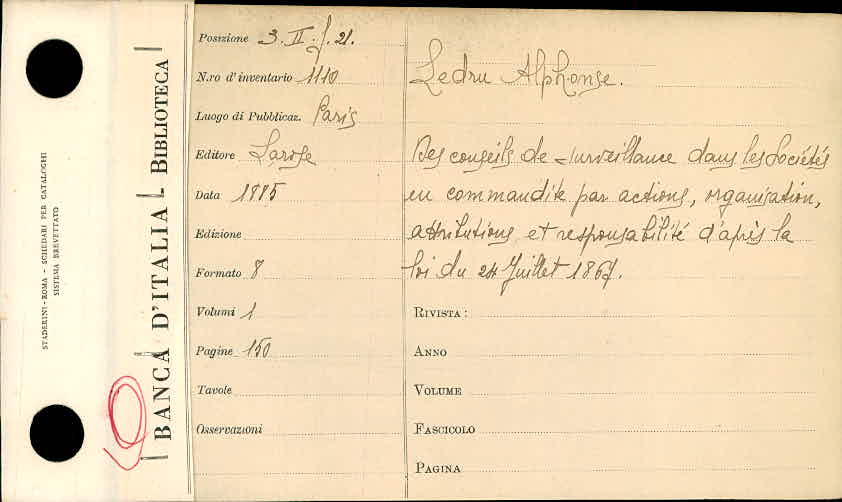 STADERINI - ROMA - SCHEDARI PER CATALOGHI
SISTEMA BREVETTATO
BANCA D'ITALIA - BIBLIOTECA
Posizione 3. II. f. 21.
N.ro d'inventario 1110
Luogo di Pubblicaz. Paris
Editore Larose
Data 1885
Edizione
Formato 8
Volumi 1
Pagine 150
Tavole
Osservazioni
Ledru Alphonse.
Des conseils de surveillance dans les Sociétés
en commandite par actions, organisation,
attributions et responsabilité d'après la
loi du 24 Juillet 1867.
RIVISTA:
ANNO
VOLUME
FASCICOLO
PAGINA